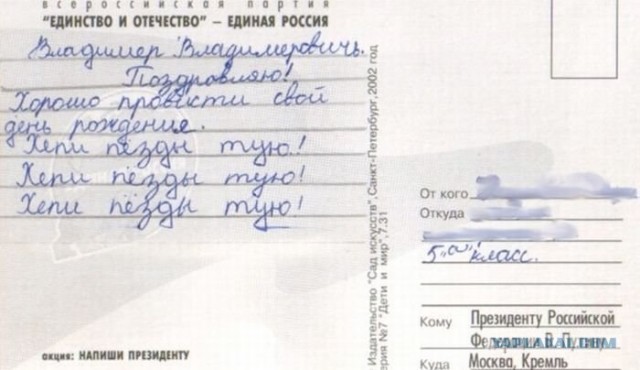 всероссийская партия
"ЕДИНСТВО И ОТЕЧЕСТВО" – ЕДИНАЯ РОССИЯ
Владимер Владимеровичь.
Поздровляю!
Хорошо провисти свой
день рождение.
Хепи пёзды тую!
Хепи пёзды тую!
Хепи пёзды тую!
акция: НАПИШИ ПРЕЗИДЕНТУ
Издательство "Сад искусств", Санкт-Петербург, 2002 год
Серия №7 "Дети и мир", 7.31
От кого
Откуда
5 "а" класс.
Кому Президенту Российской
Федерации В. Путину
Куда Москва, Кремль